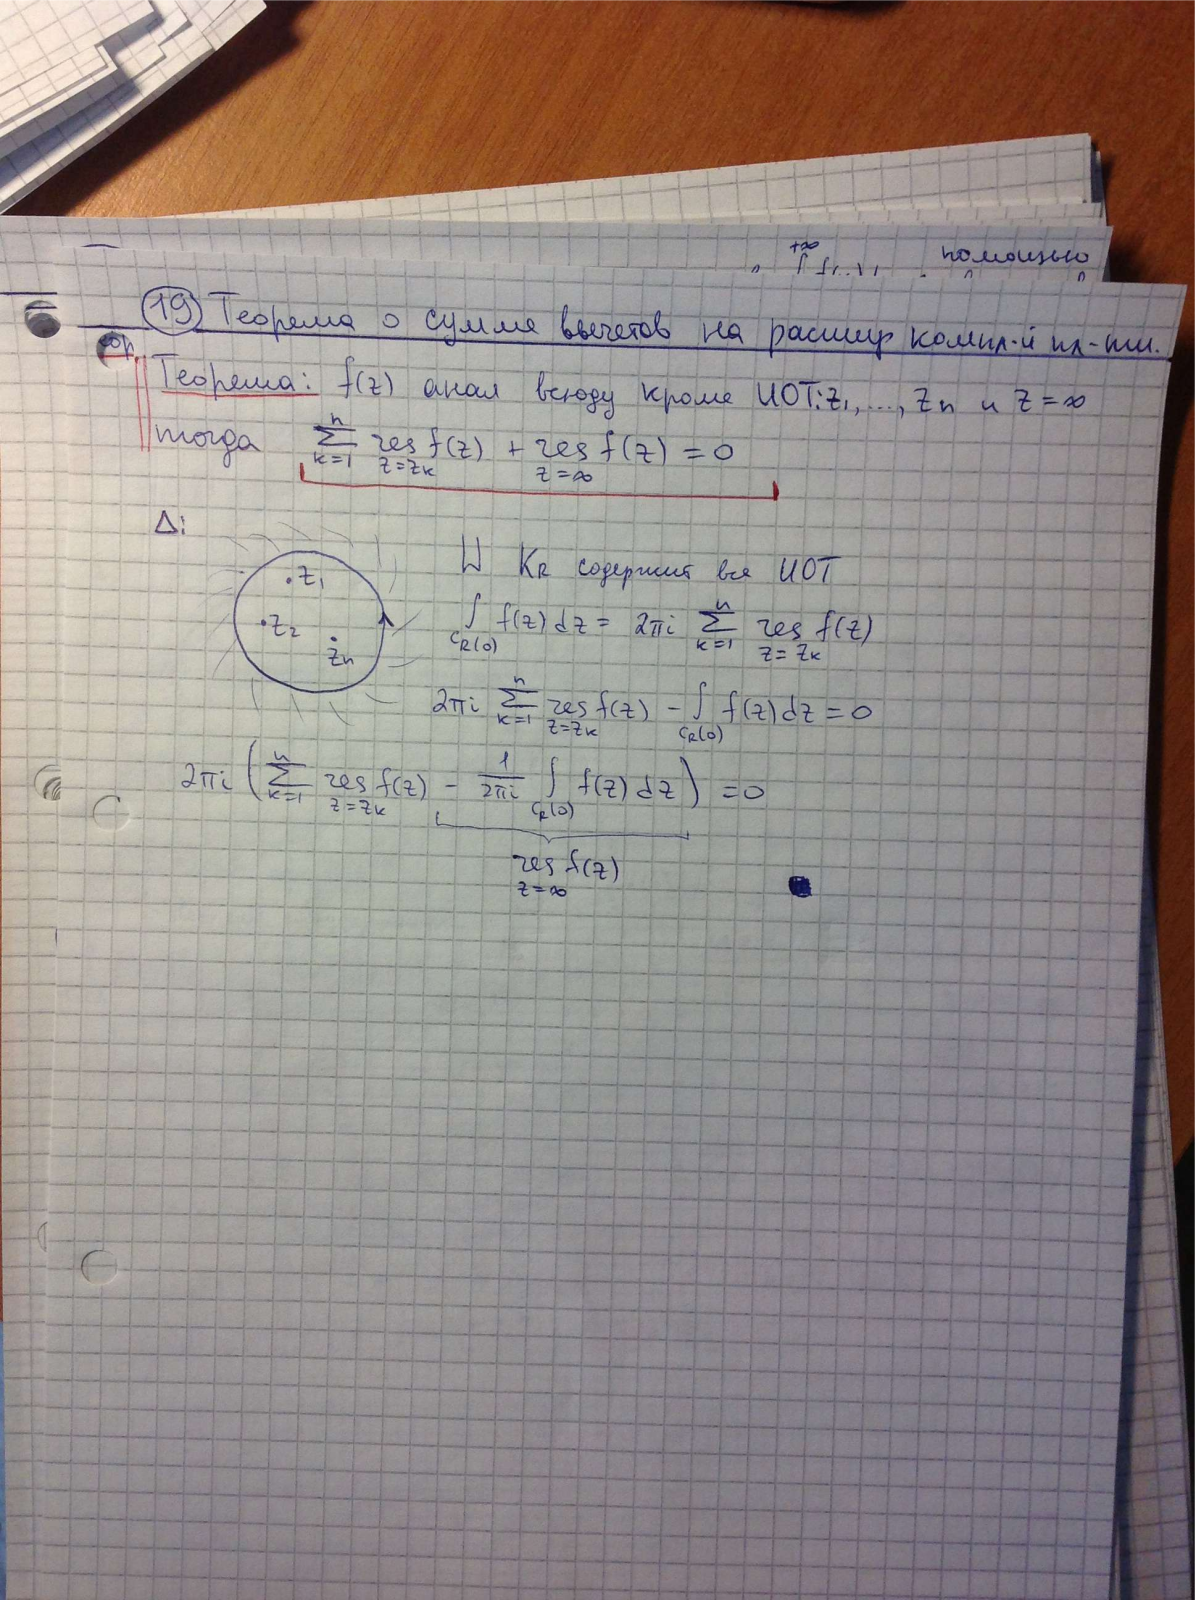 помощью
+∞
⑲ Теорема о сумме вычетов на расшир компл-й пл-ти.
Теорема: f(z) анал всюду кроме ИОТ: z₁, ..., zₙ и z = ∞
тогда ∑ₖ₌₁ⁿ res_{z=zₖ} f(z) + res_{z=∞} f(z) = 0
Δ:
z₁
z₂
zₙ
⊔ K_R содержит все ИОТ
∫_{C_R(0)} f(z) dz = 2πi ∑ₖ₌₁ⁿ res_{z=zₖ} f(z)
2πi ∑ₖ₌₁ⁿ res_{z=zₖ} f(z) - ∫_{C_R(0)} f(z) dz = 0
2πi (∑ₖ₌₁ⁿ res_{z=zₖ} f(z) - 1/2πi ∫_{C_R(0)} f(z) dz) = 0
res_{z=∞} f(z)